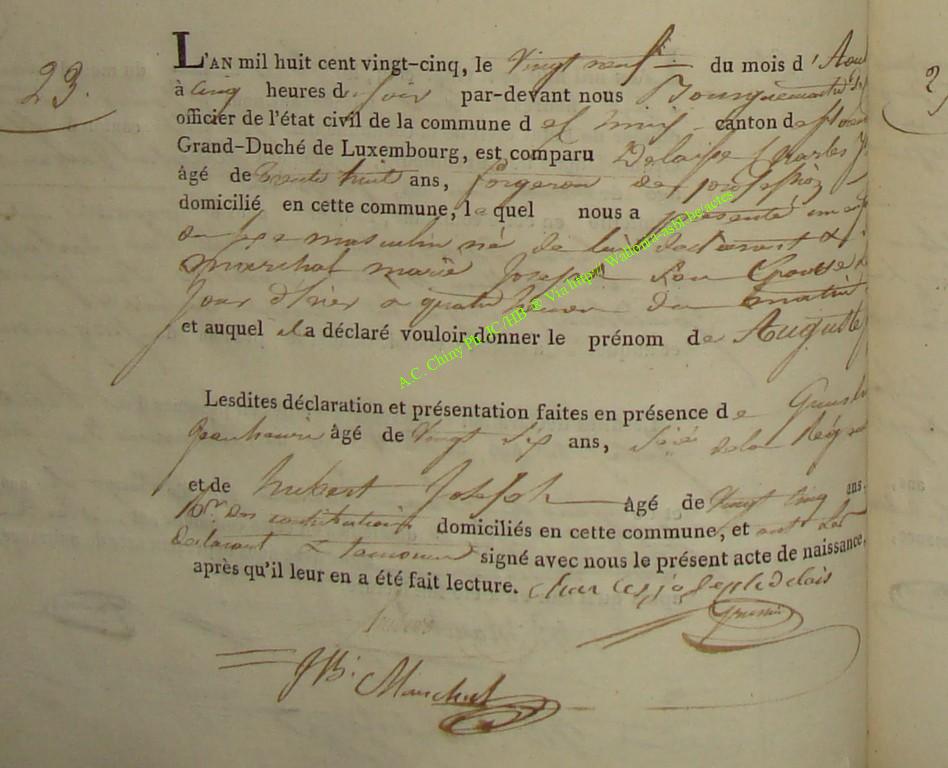 23.
L'AN mil huit cent vingt-cinq, le Vingt neuf du mois d'Aou
à cinq heures du soir par-devant nous Bourguemaitre
officier de l'état civil de la commune d canton de flo
Grand-Duché de Luxembourg, est comparu Charles
âgé de trente huit ans, forgeron de profession
domicilié en cette commune, lequel nous a presenté un
du sexe masculin né de lui declarant &
marchal marie Joseph
jour d'hier a quatre heures du matin
et auquel il a déclaré vouloir donner le prénom de Auguste
Lesdites déclaration et présentation faites en présence de
Jean henri âgé de Vingt Six ans,
et de hubert Joseph âgé de Vingt Cinq ans.
des contributions domiciliés en cette commune, et ont les
declarant & temoins signé avec nous le présent acte de naissance,
après qu'il leur en a été fait lecture. Charles joseph delais
JB. Marchal
A.C. Chiny Ph JC /HB © Via http:// Wallonia-asbl.be/actes